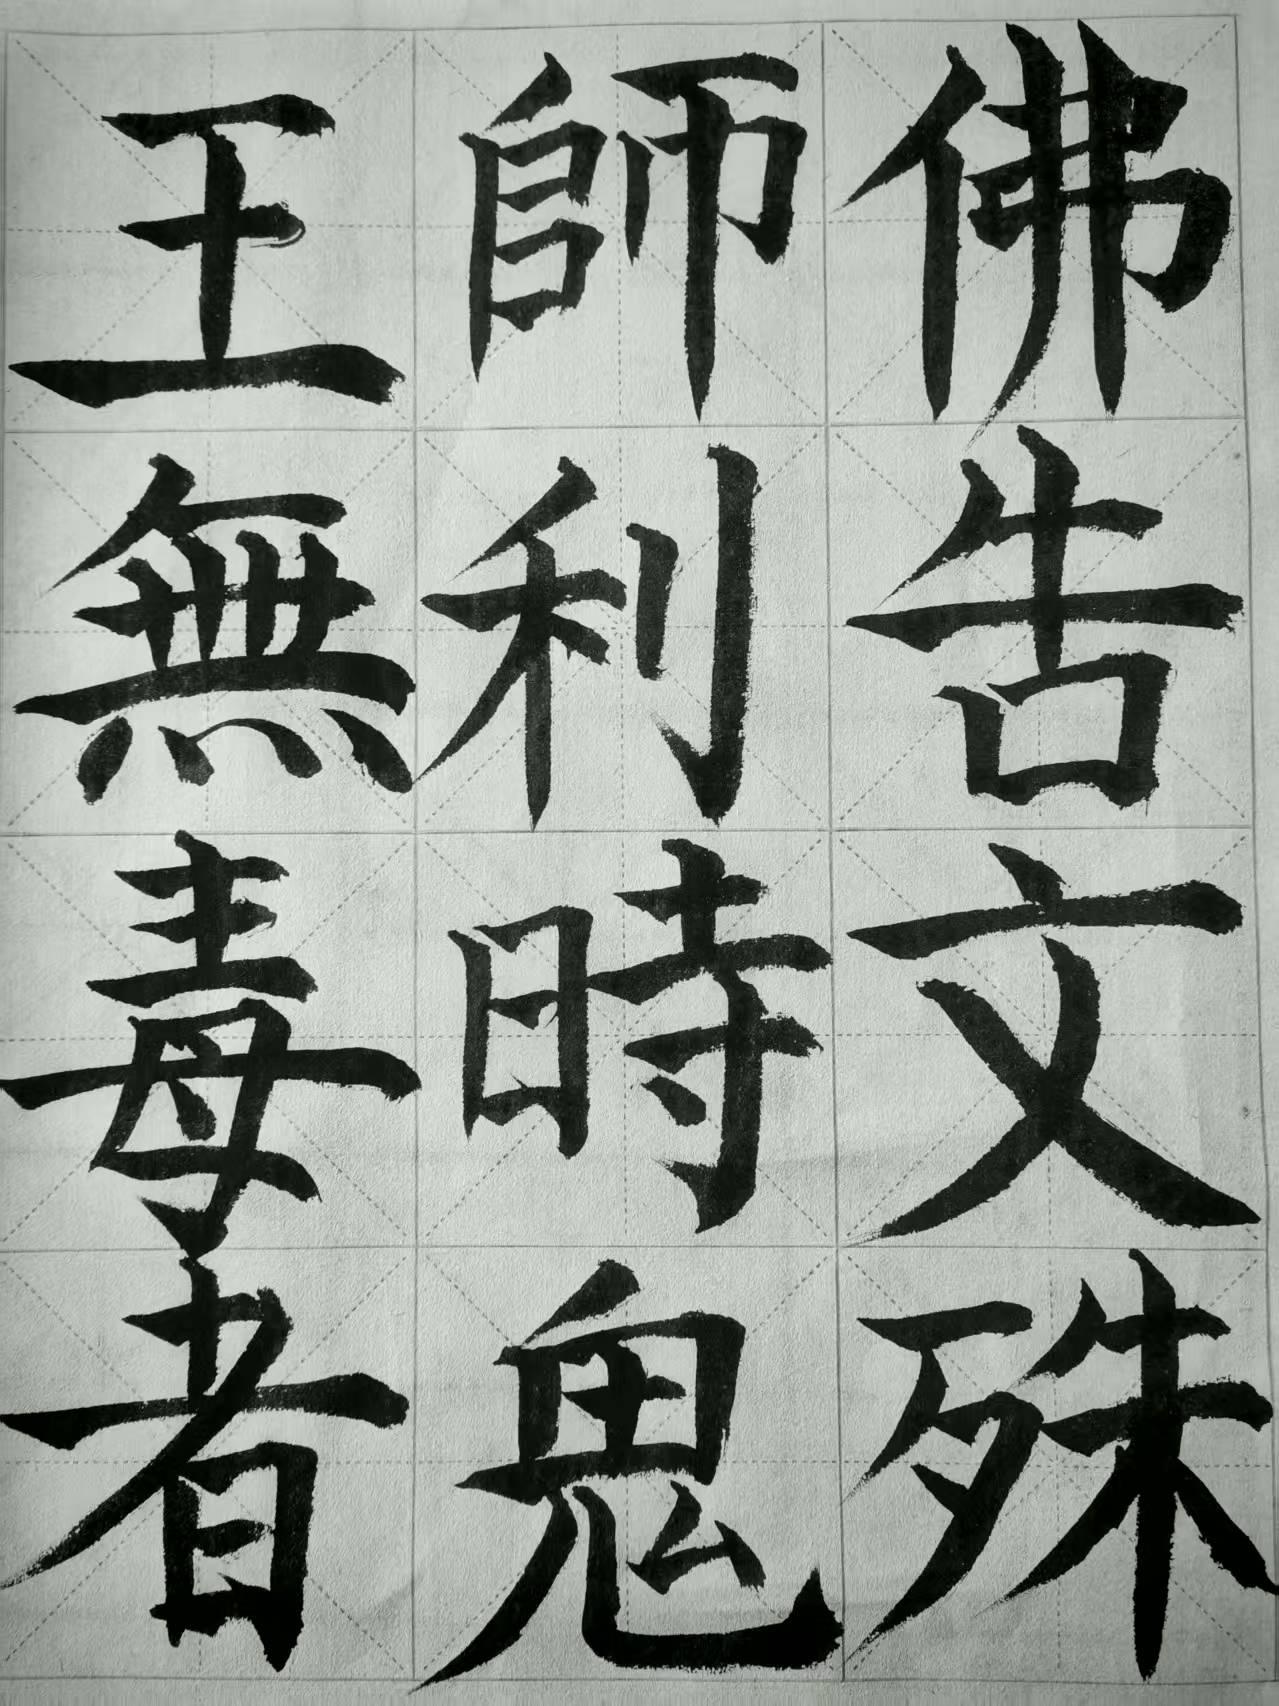 佛告文殊
師利時鬼
王無毒者